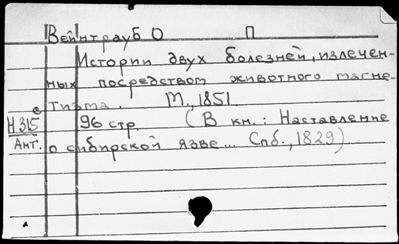 Вейнтрауб О П
Истории двух болезней, излечен-
ных посредством животного магне-
тизма. М., 1851.
Н 315 96 стр. (В кн.: Наставление
Ант. о сибирской язве... Спб., 1829)